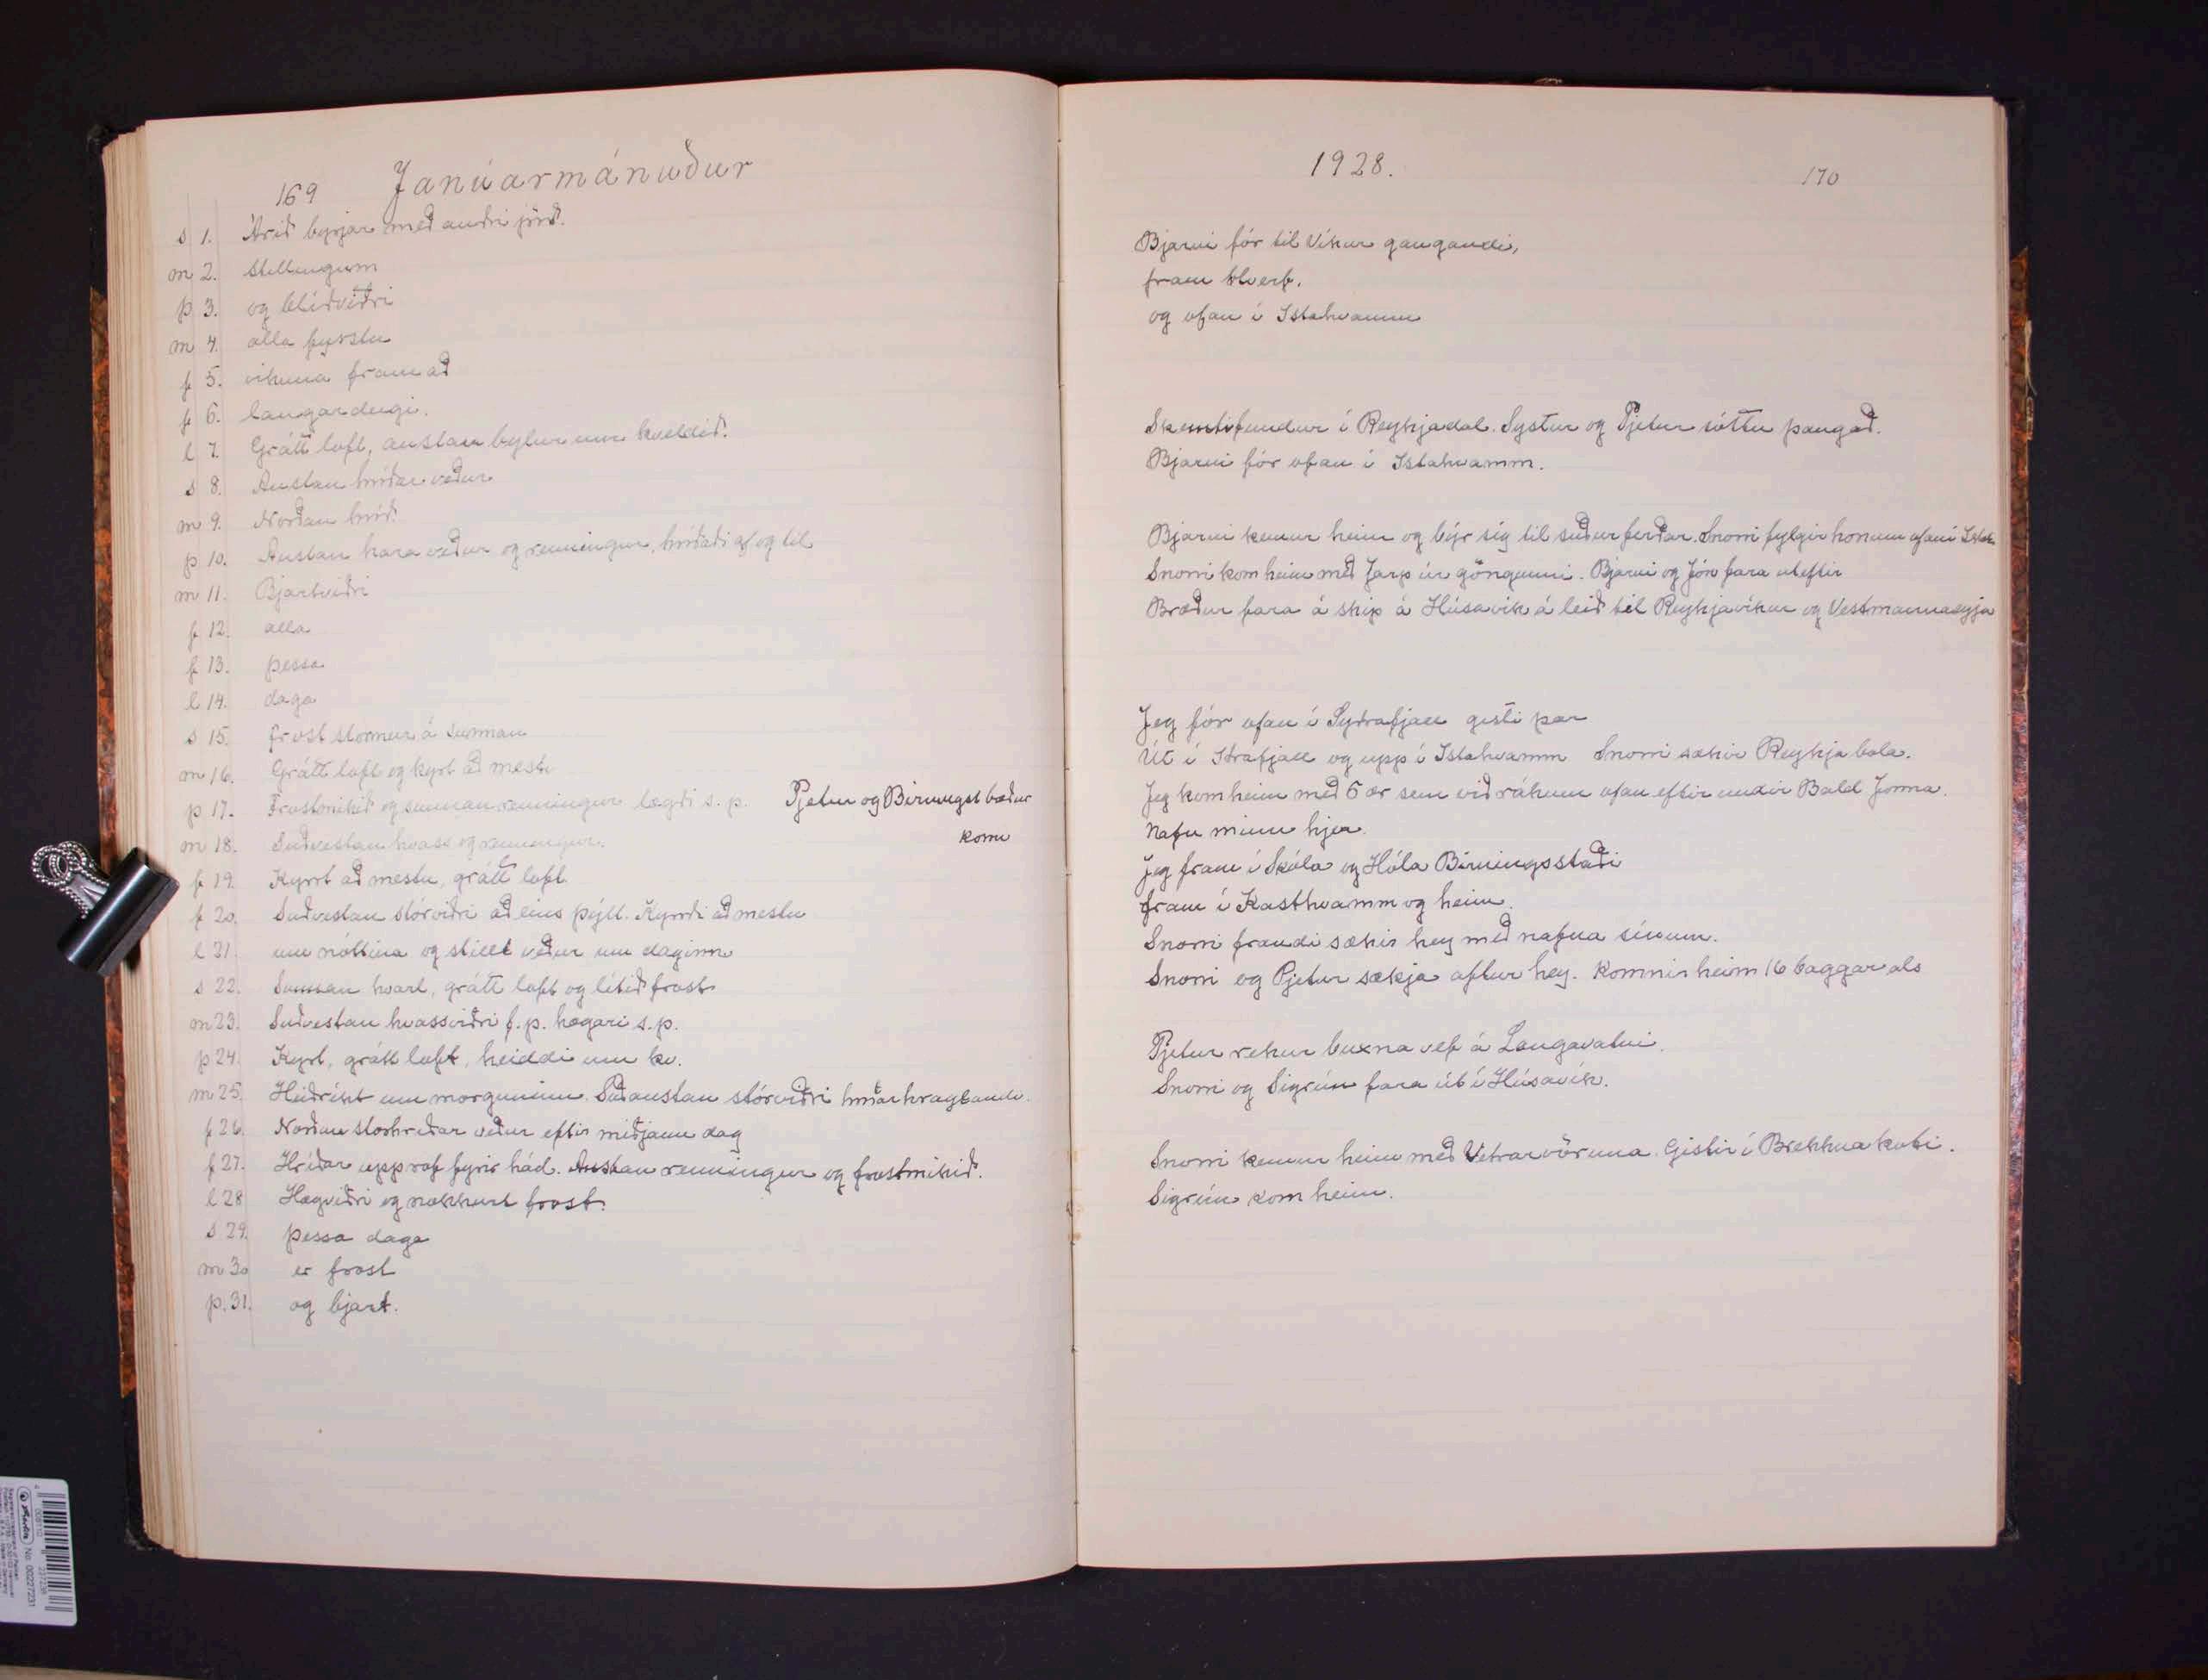 169 Janúarmánuður
s 1. Árið byrjar með auðri jörð.
m 2. stillingum
þ 3. og blíðviðri
m 4. alla fyrstu
f 5. vikuna fram að
f 6. laugardegi.
l 7. Grátt loft, austan bylur um kveldið.
s 8. Austan hríðar veður
m 9. Norðan hríð.
þ 10. Austan kara veður og renningur, hríðaði af og til
m 11. Bjartviðri
f 12. alla
f 13. þessa
l 14. daga
s 15. frost stormur á sunnan
m 16. Grátt loft og kyrt að mestu
þ 17. Frostmikið og sunnan renningur lægði s. p. Pjetur og Birningst bæður
m 18. Suðvestan hvass og renningur. komu
f 19. Kyrrt að mestu, grátt loft
f 20. Suðvestan stórviðri að eins þýtt. Kyrrði að mestu
l 21 um nóttina og stillt veður um daginn
s 22. Sunnan hvart, grátt loft og lítið frost
m 23. Suðvestan hvassviðri f. p. hægari s. p.
þ 24. Kyrt, grátt loft, heiddi um kv.
m 25. Heiðríkt um morguninn. Suðaustan stórviðri hríðarhraglandi.
f 26. Norðan stórhríðar veður eftir miðjann dag
f 27. Hríðar upprof fyrir hád. Austan renningur og frostmikið.
l 28 Hægviðri og nokkurt frost.
s 29. þessa daga
m 30 er frost
þ. 31. og bjart.
1928. 170
Bjarni fór til Víkur gangandi,
fram Hverf.
og ofan í Ístahvamm
Skemtifundur í Reykjadal. Systur og Pjetur sóttu þangað.
Bjarni fór ofan í Ístahvamm.
Bjarni kemur heim og býr sig til suðurferðar. Snorri fylgir honum ofan í Ístah
Snorri kom heim með Jarp úr göngunni. Bjarni og Jón fara úteftir
Bræður fara á skip á Húsavík á leið til Reykjavíkur og Vestmannaeyja
Jeg fór ofan í Sydrafjall gisti þar
Út í Ytrafjall og upp í Ístahvamm Snorri sækir Reykja bola.
Jeg kom heim með 6 ær sem við rákum ofan eftir undir Bald Jonna.
Nafni minn hjer.
Jeg fram í Skóla og Hóla Birningsstaði
fram í Kasthvamm og heim.
Snorri frændi sækir hey með nafna sínum.
Snorri og Pjetur sækja aftur hey. Komnir heim 16 baggar als
Pjetur rekur buxna vef á Langavatni.
Snorri og Sigrún fara út í Húsavík.
Snorri kemur heim með Vetrarvöruna. Gistir í Brekknakoti.
Sigrún kom heim.